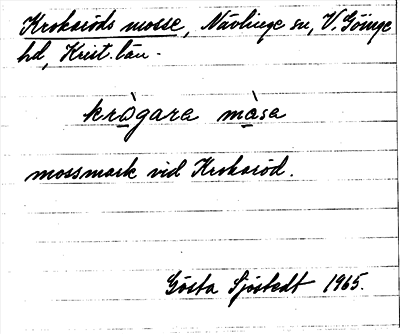 Kroksröds mosse, Nävlinge sn, V. Göinge
hd, Krist. län.
krògara màsa
mossmark vid Kroksröd.
Gösta Sjöstedt 1965.